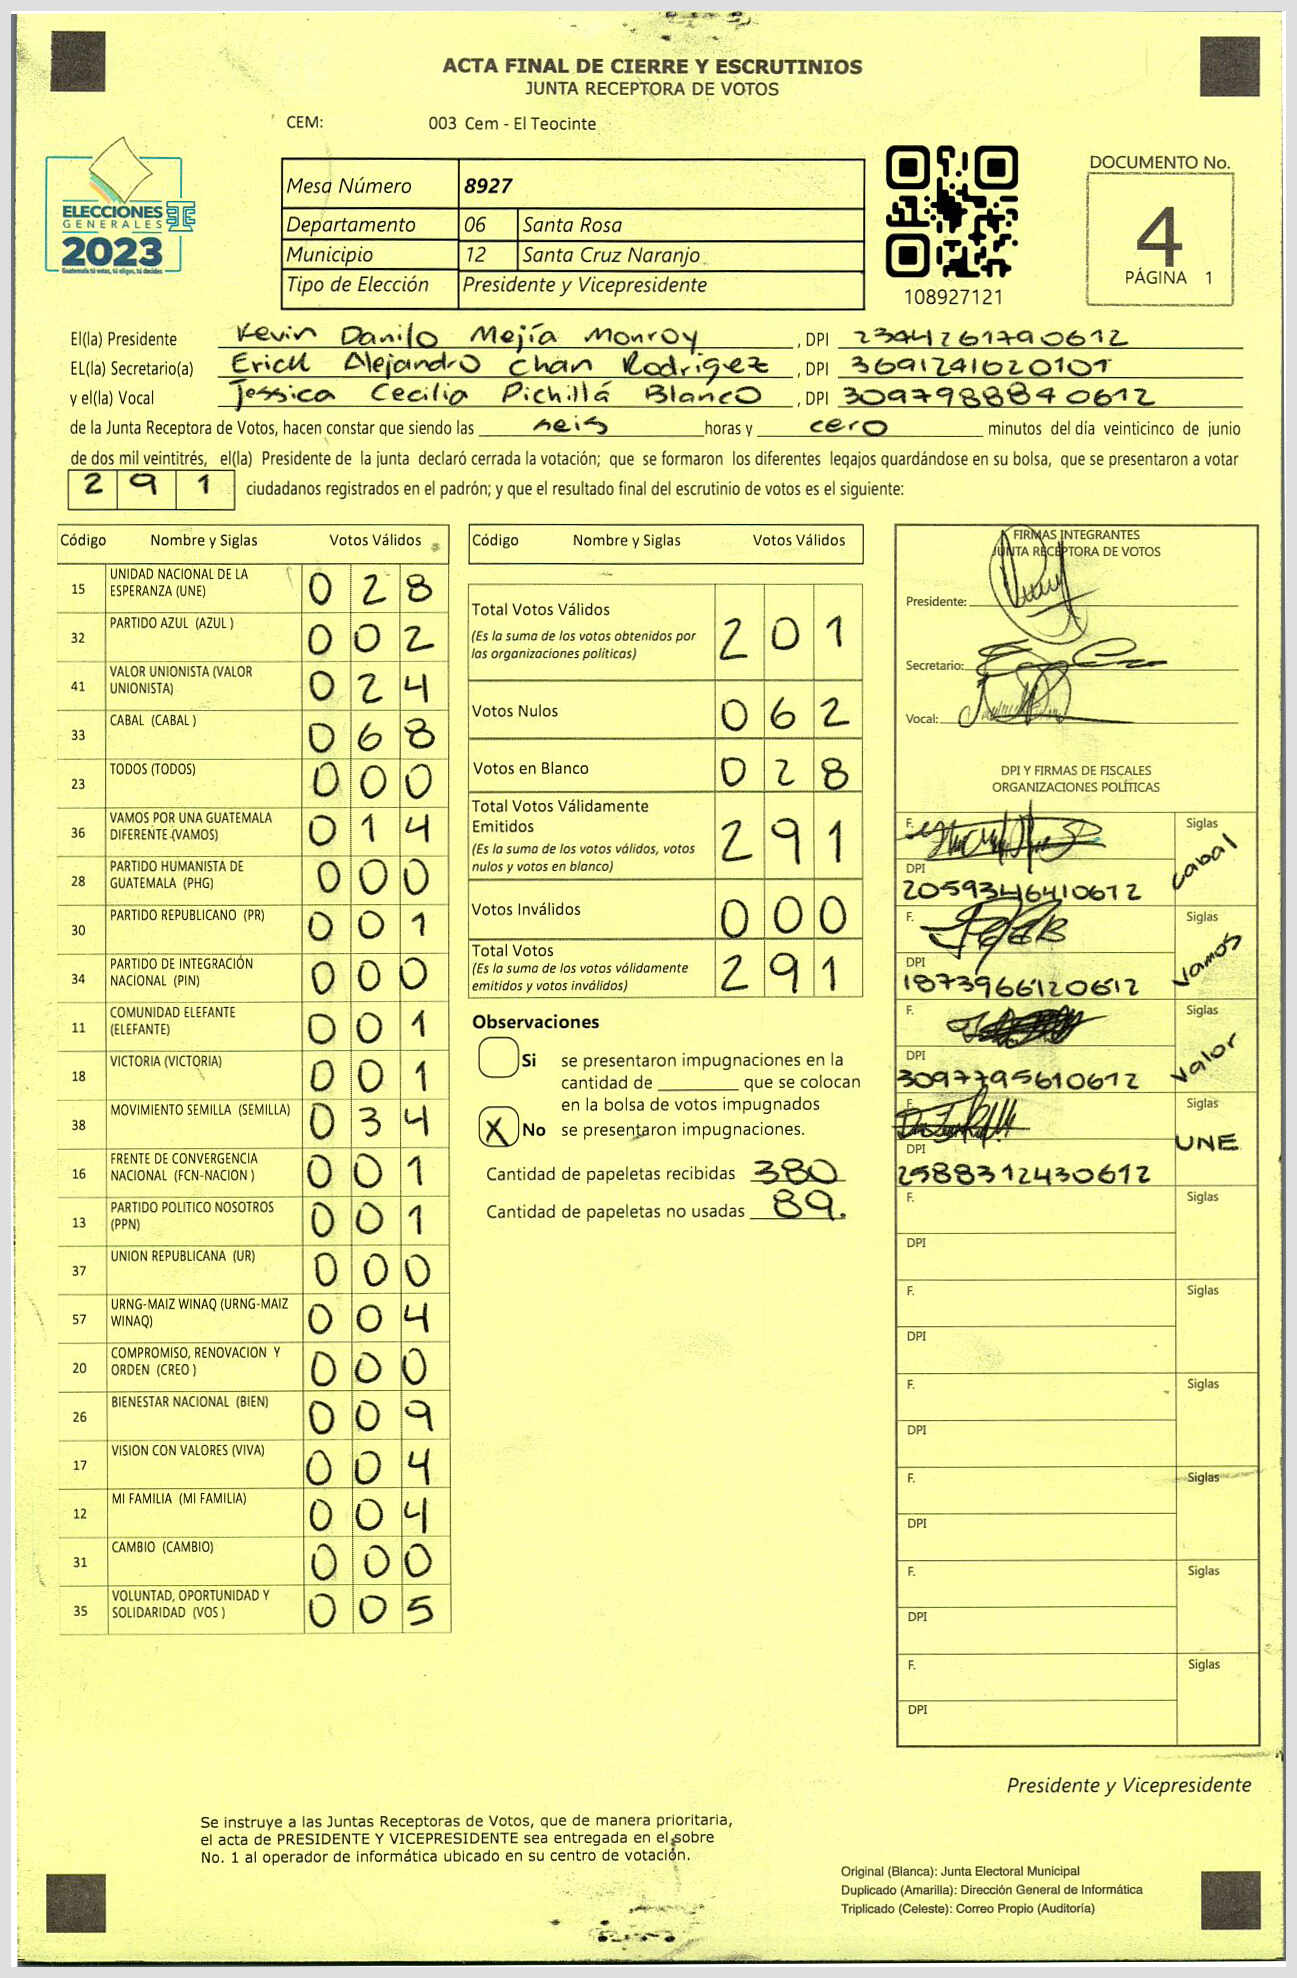 ACTA FINAL DE CIERRE Y ESCRUTINIOS
JUNTA RECEPTORA DE VOTOS
CEM: 003 Cem - El Teocinte
ELECCIONES
GENERALES
2023
Guatemala tú votas, tú eliges, tú decides
Mesa Número 8927
Departamento 06 Santa Rosa
Municipio 12 Santa Cruz Naranjo
Tipo de Elección Presidente y Vicepresidente
108927121
DOCUMENTO No.
4
PÁGINA 1
El(la) Presidente Kevin Danilo Mejía Monroy , DPI 2394261790612
EL(la) Secretario(a) Erick Alejandro Chan Rodrigez , DPI 3691241020101
y el(la) Vocal Jessica Cecilia Pichillá Blanco , DPI 3097988840612
de la Junta Receptora de Votos, hacen constar que siendo las seis horas y cero minutos del día veinticinco de junio
de dos mil veintitrés, el(la) Presidente de la junta declaró cerrada la votación; que se formaron los diferentes legajos quardándose en su bolsa, que se presentaron a votar
291 ciudadanos registrados en el padrón; y que el resultado final del escrutinio de votos es el siguiente:
Código Nombre y Siglas Votos Válidos
15 UNIDAD NACIONAL DE LA ESPERANZA (UNE) 028
32 PARTIDO AZUL (AZUL ) 002
41 VALOR UNIONISTA (VALOR UNIONISTA) 024
33 CABAL (CABAL ) 068
23 TODOS (TODOS) 000
36 VAMOS POR UNA GUATEMALA DIFERENTE (VAMOS) 014
28 PARTIDO HUMANISTA DE GUATEMALA (PHG) 000
30 PARTIDO REPUBLICANO (PR) 001
34 PARTIDO DE INTEGRACIÓN NACIONAL (PIN) 000
11 COMUNIDAD ELEFANTE (ELEFANTE) 001
18 VICTORIA (VICTORIA) 001
38 MOVIMIENTO SEMILLA (SEMILLA) 034
16 FRENTE DE CONVERGENCIA NACIONAL (FCN-NACION ) 001
13 PARTIDO POLITICO NOSOTROS (PPN) 001
37 UNION REPUBLICANA (UR) 000
57 URNG-MAIZ WINAQ (URNG-MAIZ WINAQ) 004
20 COMPROMISO, RENOVACION Y ORDEN (CREO ) 000
26 BIENESTAR NACIONAL (BIEN) 009
17 VISION CON VALORES (VIVA) 004
12 MI FAMILIA (MI FAMILIA) 004
31 CAMBIO (CAMBIO) 000
35 VOLUNTAD, OPORTUNIDAD Y SOLIDARIDAD (VOS ) 005
Código Nombre y Siglas Votos Válidos
Total Votos Válidos 201
(Es la suma de los votos obtenidos por
las organizaciones políticas)
Votos Nulos 062
Votos en Blanco 028
Total Votos Válidamente
Emitidos 291
(Es la suma de los votos válidos, votos
nulos y votos en blanco)
Votos Inválidos 000
Total Votos 291
(Es la suma de los votos válidamente
emitidos y votos inválidos)
Observaciones
Si se presentaron impugnaciones en la
cantidad de ________ que se colocan
en la bolsa de votos impugnados
X No se presentaron impugnaciones.
Cantidad de papeletas recibidas 380
Cantidad de papeletas no usadas 89.
FIRMAS INTEGRANTES
JUNTA RECEPTORA DE VOTOS
Presidente:
Secretario:
Vocal:
DPI Y FIRMAS DE FISCALES
ORGANIZACIONES POLÍTICAS
F. Siglas cabal
DPI 2059346410612
F. Siglas vamos
DPI 1873966120612
F. Siglas valor
DPI 3097795610612
F. Siglas UNE
DPI 2588312430612
F. Siglas
DPI
F. Siglas
DPI
F. Siglas
DPI
F. Siglas
DPI
F. Siglas
DPI
F. Siglas
DPI
Presidente y Vicepresidente
Se instruye a las Juntas Receptoras de Votos, que de manera prioritaria,
el acta de PRESIDENTE Y VICEPRESIDENTE sea entregada en el sobre
No. 1 al operador de informática ubicado en su centro de votación.
Original (Blanca): Junta Electoral Municipal
Duplicado (Amarilla): Dirección General de Informática
Triplicado (Celeste): Correo Propio (Auditoría)